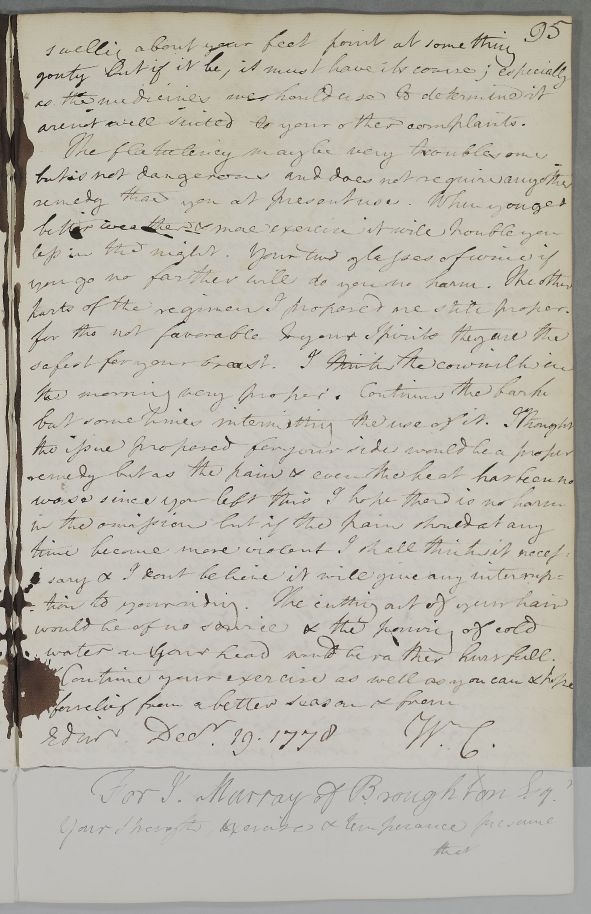 95
swelling about your feet point at something
gouty but if it be, it must have its course; especially
as the medicines we should use to determine it
are not well suited to your other complaints.
The flatulency may be very troublesome
but is not dangerous and does not require any other
remedy than you at present use. When you get
better weather & more exercise it will trouble you
less in the night. Your two glasses of wine if
you go no farther will do you no harm. The other
parts of the regimen I proposed are still proper.
for tho not favorable to your Spirits they are the
safest for your breast. I think the cow milk in
the morning very proper. Continue the bark
but sometimes intermitting the use of it. I thought
the issue proposed for your side would be a proper
remedy but as the pain & even the heat has been no
worse since you left this I hope there is no harm
in the omission but if the pain should at any
time become more violent I shall think it neces-
sary & I dont believe it will give any interrup-
tion to your riding. The cutting out of your hair
would be of no service & the pouring of cold
water on your head would be rather hurtfull.
Continue your exercise as well as you can & hope
for relief from a better season & from
Edinr. Decr. 19. 1778 W. C.
For J. Murray of Broughton Esqr.
Your Strength, Exercise & temperance presume
that